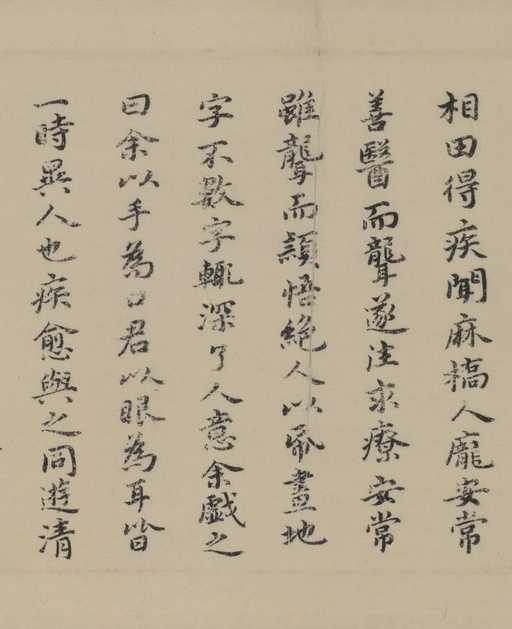 相田得疾聞麻橋人龐安常
善醫而聾遂注求療安常
雖聾而穎悟絕人以帋畫地
字不數字輒深了人意余戲之
曰余以手為口君以眼為耳皆
一時異人也疾愈與之同遊清